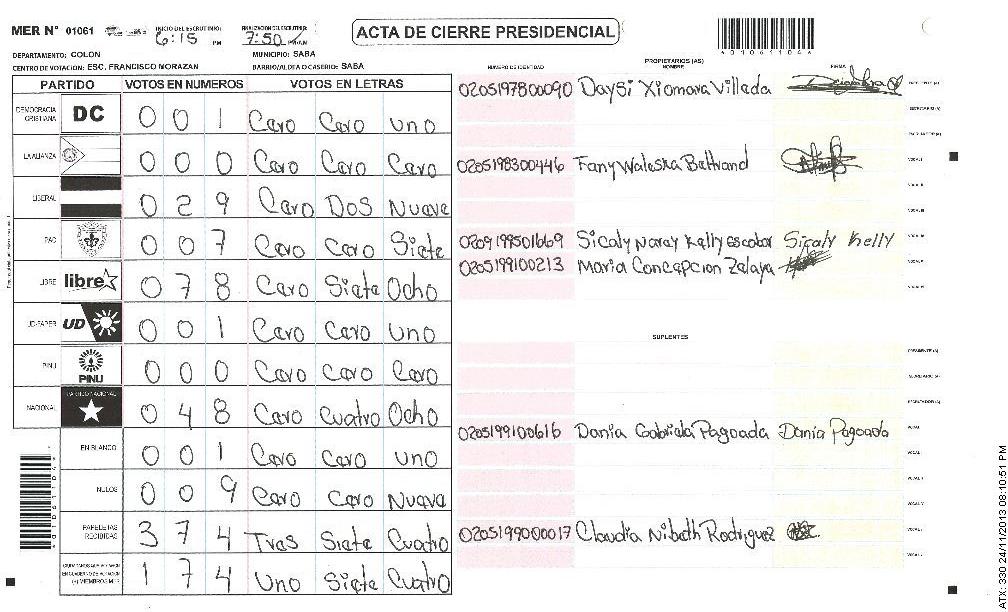 MER N° 01061 INICIO DEL ESCRUTINIO: 6:15 PM FINALIZACION DEL ESCRUTINIO: 7:50 PM/AM ACTA DE CIERRE PRESIDENCIAL
DEPARTAMENTO: COLON MUNICIPIO: SABA
CENTRO DE VOTACION: ESC. FRANCISCO MORAZAN BARRIO/ALDEA O CASERIO: SABA
PARTIDO VOTOS EN NUMEROS VOTOS EN LETRAS
DEMOCRACIA CRISTIANA DC 0 0 1 Cero Cero uno
LA ALIANZA 0 0 0 Cero Cero Cero
LIBERAL 0 2 9 Cero Dos Nueve
PAC 0 0 7 Cero Cero Siete
LIBRE libre 0 7 8 Cero Siete Ocho
UD-FAPER UD 0 0 1 Cero Cero uno
PINU PINU 0 0 0 Cero Cero Cero
NACIONAL PARTIDO NACIONAL 0 4 8 Cero Cuatro Ocho
EN BLANCO 0 0 1 Cero Cero uno
NULOS 0 0 9 Cero Cero Nueve
PAPELETAS RECIBIDAS 3 7 4 Tres Siete Cuatro
CIUDADANOS QUE VOTARON EN CUADERNO DE VOTACION (+) MIEMBROS MER 1 7 4 Uno Siete Cuatro
NUMERO DE IDENTIDAD PROPIETARIOS (AS) NOMBRE FIRMA
0205197800090 Daysi Xiomara Villeda
0205198300446 Fany Waleska Beltrand
0209199501669 Sicaly Naray Kelly escobar Sicaly Kelly
0205199100213 Maria Concepcion Zelaya
SUPLENTES
0205199100616 Dania Gabriela Pagoada Dania Pagoada
0205199000017 Claudia Nibeth Rodriguez
ATX: 330 24/11/2013 08:10:51 PM